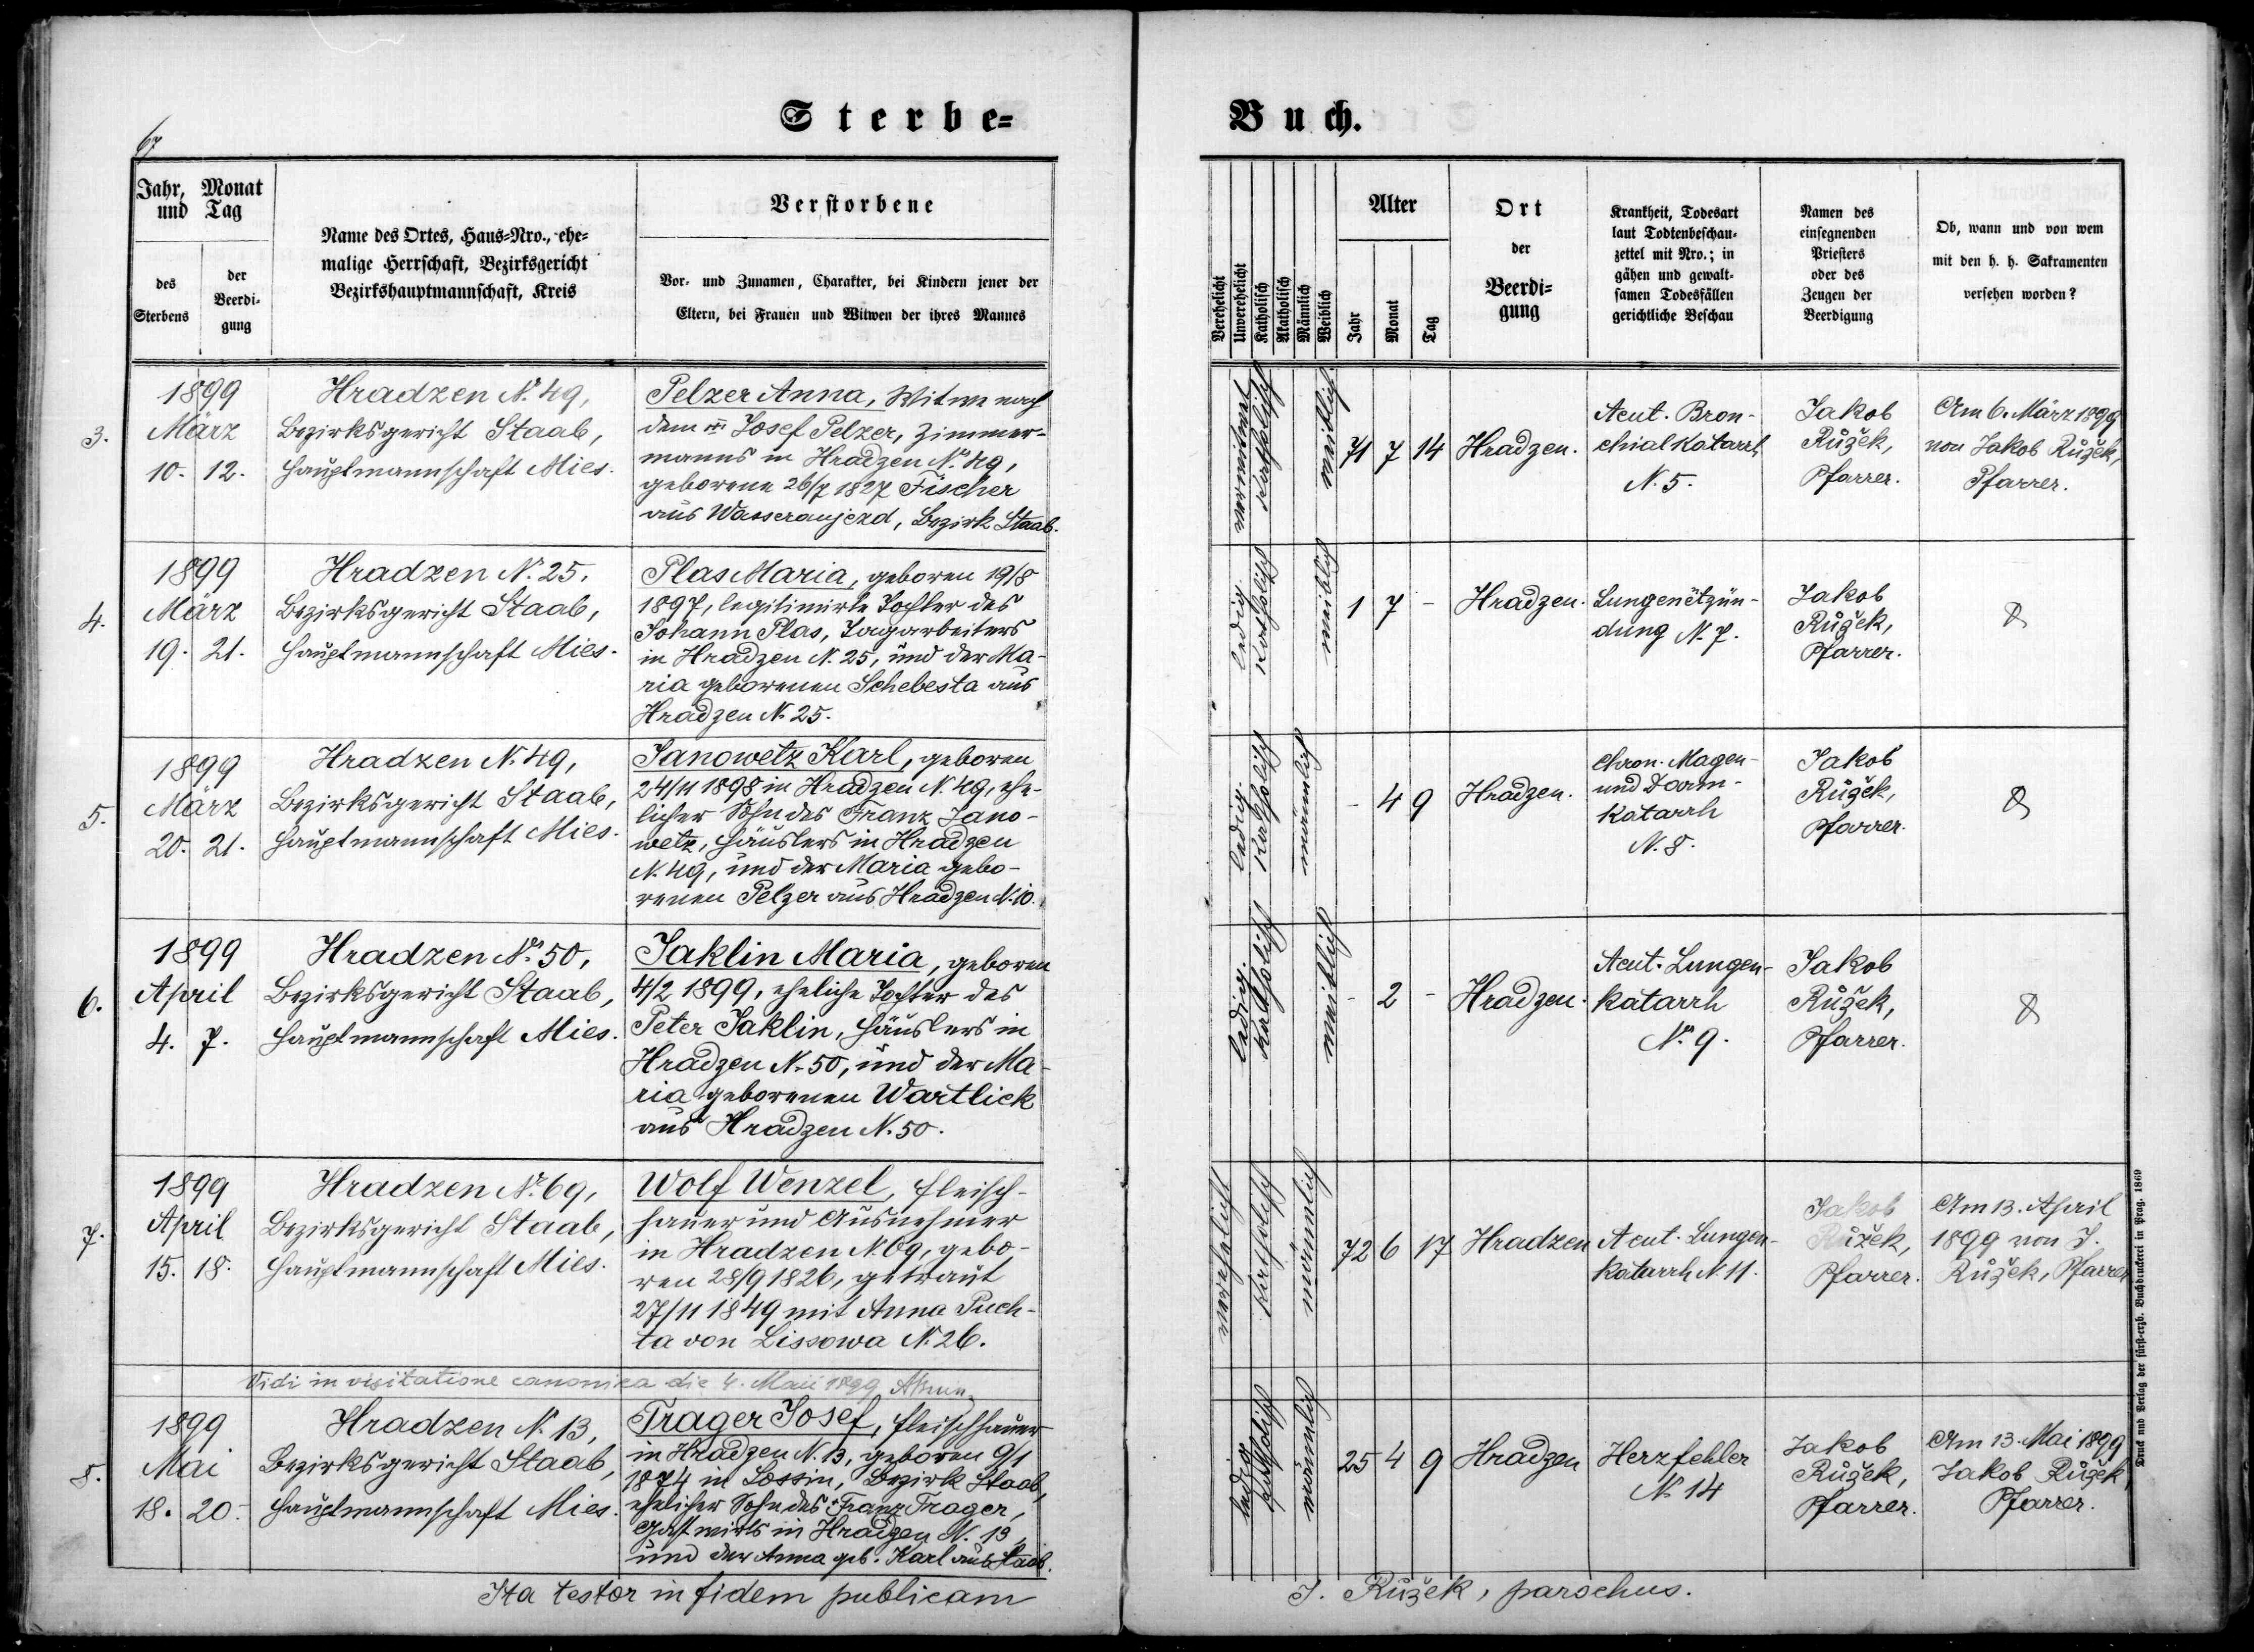 Sterbe=
Buch.
67
Jahr, Monat
und Tag
des
Sterbens
der
Beerdi-
gung
Name des Ortes, Haus=Nro., ehe=
malige Herrschaft, Bezirksgericht
Bezirkshauptmannschaft, Kreis
Verstorbene
Vor- und Zunamen, Charakter, bei Kindern jener der
Eltern, bei Frauen und Witwen der ihres Mannes
Verehelicht
Unverehelicht
Katholisch
Akatholisch
Männlich
Weiblich
Alter
Jahr
Monat
Tag
Ort
der
Beerdi=
gung
Krankheit, Todesart
laut Todtenbeschau=
zettel mit Nro.; in
gähen und gewalt-
samen Todesfällen
gerichtliche Beschau
Namen des
einsegnenden
Priesters
oder des
Zeugen der
Beerdigung
Ob, wann und von wem
mit den h. h. Sakramenten
versehen worden?
3.
1899
März
10. 12.
Hradzen N. 49,
Bezirksgericht Staab,
Hauptmannschaft Mies.
Pelzer Anna, Witwe nach
dem Josef Pelzer, Zimmer-
manns in Hradzen N. 49,
geborene 26/7 1827 Fischer
aus Wasseraujezd, Bezirk Staab.
verwitwet
katholisch
weiblich
71 7 14
Hradzen.
Acut. Bron-
chialkatarrh
N. 5.
Jakob
Růžek,
Pfarrer.
Am 6. März 1899
von Jakob Růžek,
Pfarrer.
4.
1899
März
19. 21.
Hradzen N. 25,
Bezirksgericht Staab,
Hauptmannschaft Mies.
Plas Maria, geboren 19/8
1897, legitimirte Tochter des
Johann Plas, Tagarbeiters
in Hradzen N. 25, und der Ma-
ria geborenen Schebesta aus
Hradzen N. 25.
ledig.
katholisch
weiblich
1 7 -
Hradzen.
Lungenëtzün-
dung N. 7.
Jakob
Růžek,
Pfarrer.
5.
1899
März
20. 21.
Hradzen N. 49,
Bezirksgericht Staab,
Hauptmannschaft Mies.
Janowetz Karl, geboren
24/11 1898 in Hradzen N. 49, ehe-
licher Sohn des Franz Jano-
wetz, Häuslers in Hradzen
N. 49, und der Maria gebo-
renen Pelzer aus Hradzen N. 10.
ledig.
katholisch
männlich
- 4 9
Hradzen.
Chron. Magen-
und Darm-
katarrh
N. 8.
Jakob
Růžek,
Pfarrer.
6.
1899
April
4. 7.
Hradzen N. 50,
Bezirksgericht Staab,
Hauptmannschaft Mies.
Jaklin Maria, geboren
4/2 1899, eheliche Tochter des
Peter Jaklin, Häuslers in
Hradzen N. 50, und der Ma-
ria geborenen Wartlick
aus Hradzen N. 50.
ledig.
katholisch
weiblich
- 2 -
Hradzen.
Acut. Lungen-
katarrh
N. 9.
Jakob
Růžek,
Pfarrer.
7.
1899
April
15. 18.
Hradzen N. 69,
Bezirksgericht Staab,
Hauptmannschaft Mies.
Wolf Wenzel, Fleisch-
hauer und Ausnehmer
in Hradzen N. 69, gebo-
ren 28/9 1826, getraut
27/11 1849 mit Anna Puch-
ta von Lissowa N. 26.
verehelicht
katholisch
männlich
72 6 17
Hradzen
Acut. Lungen-
katarrh N. 11.
Jakob
Růžek,
Pfarrer.
Am 13. April
1899 von J.
Růžek, Pfarrer
Vidi in visitatione canonica die 4. Maii 1899
8.
1899
Mai
18. 20.
Hradzen N. 13,
Bezirksgericht Staab,
Hauptmannschaft Mies.
Trager Josef, Fleischhauer
in Hradzen N. 13, geboren 9/1
1874 in Lossin, Bezirk Staab,
ehelicher Sohn des + Franz Trager,
Gastwirts in Hradzen N. 13,
und der Anna geb. Karl aus Staab.
ledig
katholisch
männlich
25 4 9
Hradzen
Herzfehler
N. 14
Jakob
Růžek,
Pfarrer.
Am 13. Mai 1899
Jakob Růžek,
Pfarrer.
Ita testor in fidem publicam
J. Růžek, parochus.
Druck und Verlag der fürst-erzb. Buchdruckerei in Prag. 1869